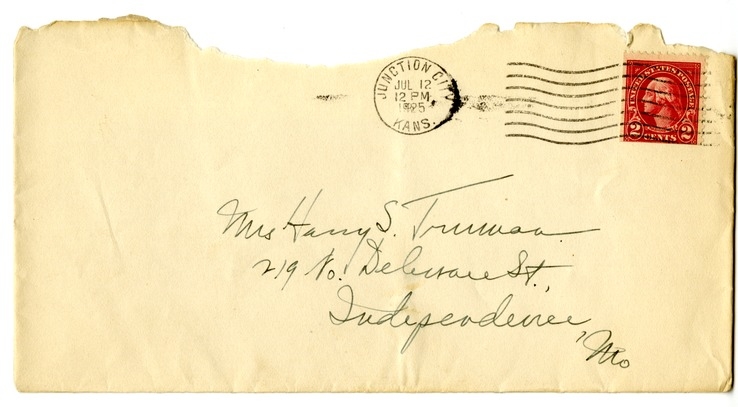 JUNCTION CITY
JUL 12
12 PM
1925
KANS.
UNITED STATES POSTAGE
2 CENTS 2
Mrs Harry S. Truman
219 No. Delaware St.,
Independence,
Mo